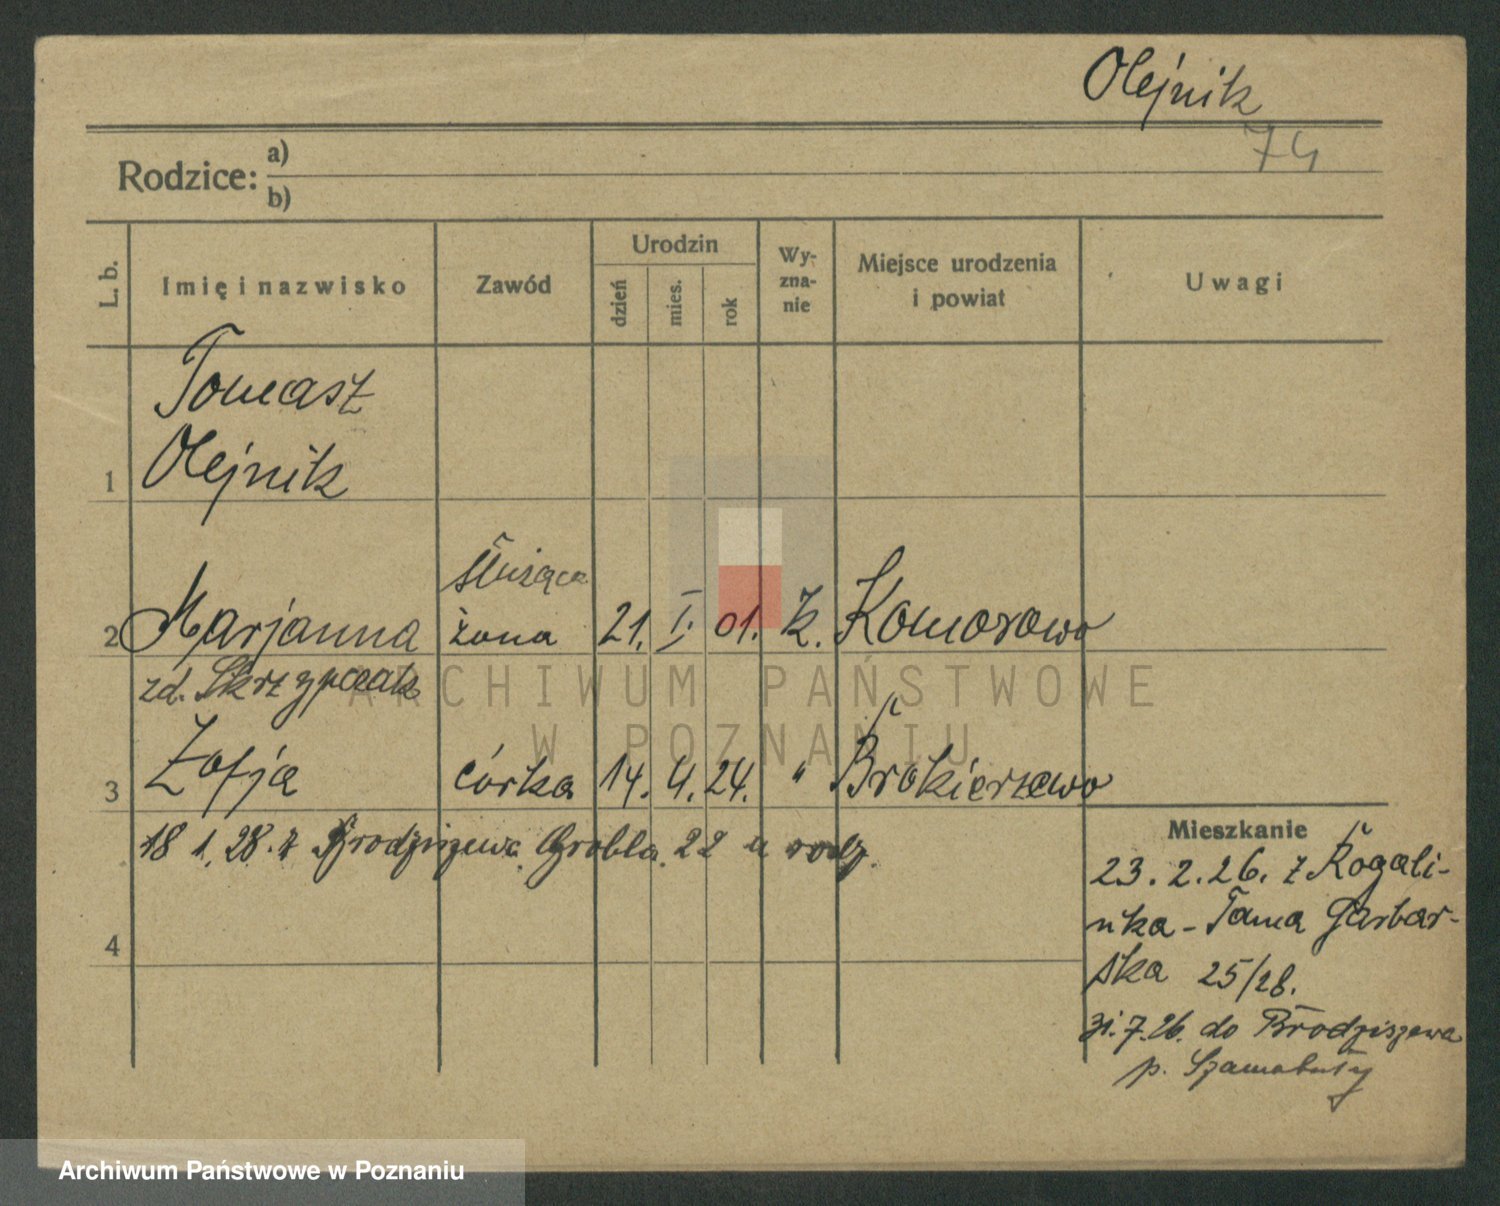 Olejnik
74
Rodzice: a)
b)
L. b.
Imię i nazwisko
Zawód
Urodzin
dzień
mies.
rok
Wy-
zna-
nie
Miejsce urodzenia
i powiat
Uwagi
Tomasz
1 Olejnik
służąca
2 Marjanna żona 21. I. 01. k. Komorowo
zd. Skrzypczak
3 Zofja córka 14. 4. 24. " Brokierzewo
18 1. 28. z Brodziszewa. Grobla. 22 u rodz.
4
Mieszkanie
23. 2. 26. z Rogali-
nka - Tama Garbar-
ska 25/28.
31. 7. 26. do Brodziszewa
p. Szamotuły
ARCHIWUM PAŃSTWOWE
W POZNANIU
Archiwum Państwowe w Poznaniu